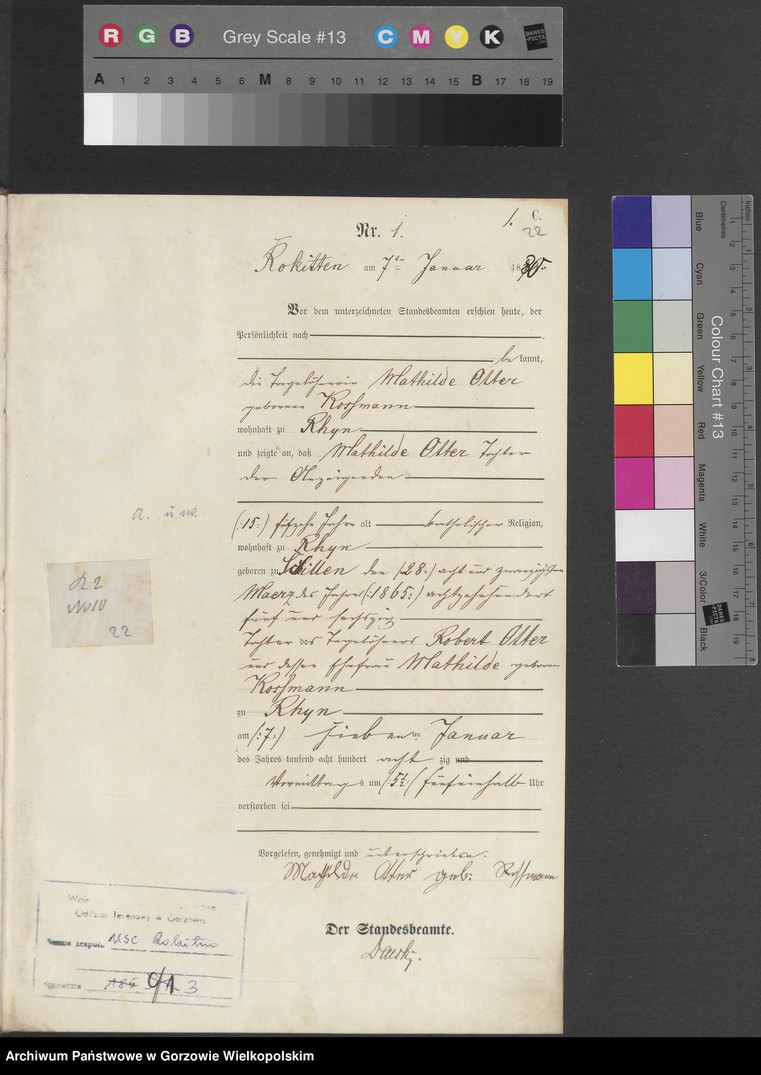 R G B Grey Scale #13 C M Y K DANES PICTA
A 1 2 3 4 5 6 M 8 9 10 11 12 13 14 15 B 17 18 19
1. C.
22
Nr. 1.
Rokitten am 7ten Januar 1880.
Vor dem unterzeichneten Standesbeamten erschien heute, der
Persönlichkeit nach
bekannt,
die Tagelöhnerin Mathilde Otter
geborene Rossmann
wohnhaft zu Rhyn
und zeigte an, daß Mathilde Otter Tochter
der Anzeigenden
a. u. w.
(:15:) fünfzehn Jahre alt katholischer Religion,
wohnhaft zu Rhyn
geboren zu den (:28:) acht und zwanzigsten
Maerz des Jahres (:1865:) achtzehnhundert
fünf und sechszig
Tochter des Tagelöhners Robert Otter
und dessen Ehefrau Mathilde geborene
Rossmann
zu Rhyn
am (:7:) sieben ten Januar
des Jahres tausend acht hundert acht zig und
Vormittags um (:5½:) fünfeinhalb Uhr
verstorben sei
Vorgelesen, genehmigt und unterschrieben.
Mathilde Otter geb: Rossmann
Der Standesbeamte.
22
Oddział Terenowy w Gorzowie
Nazwa zespołu USC Rokitno
Sygnatura 3
Colour Chart #13
Blue Cyan Green Yellow Red Magenta White 3/Color Black
Centimetres Inches
DANES PICTA
Archiwum Państwowe w Gorzowie Wielkopolskim